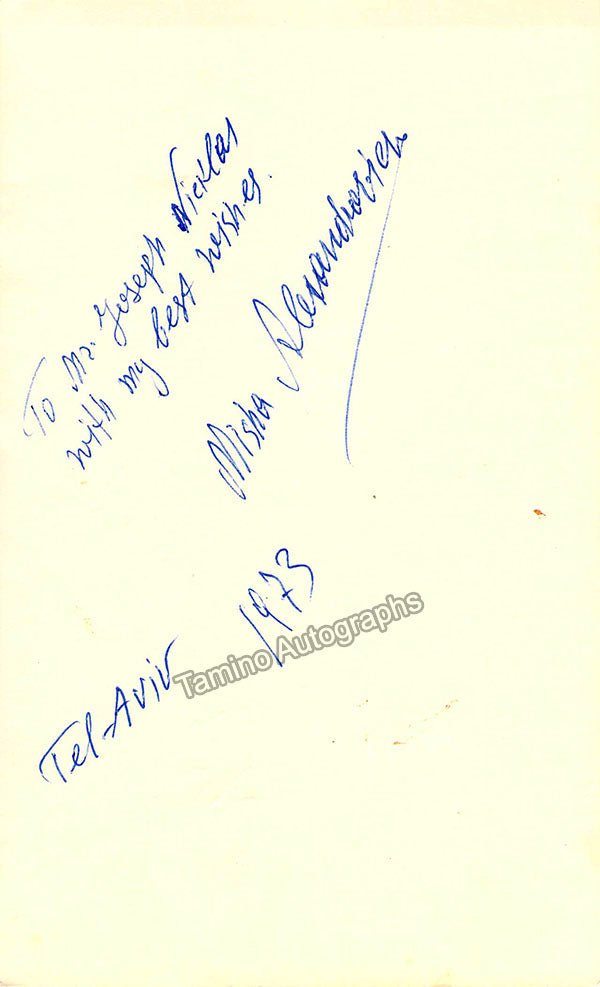 To Mr. Joseph Nicklas
with my best wishes.
Misha Alexandrovich
Tel-Aviv 1973
Tamino Autographs